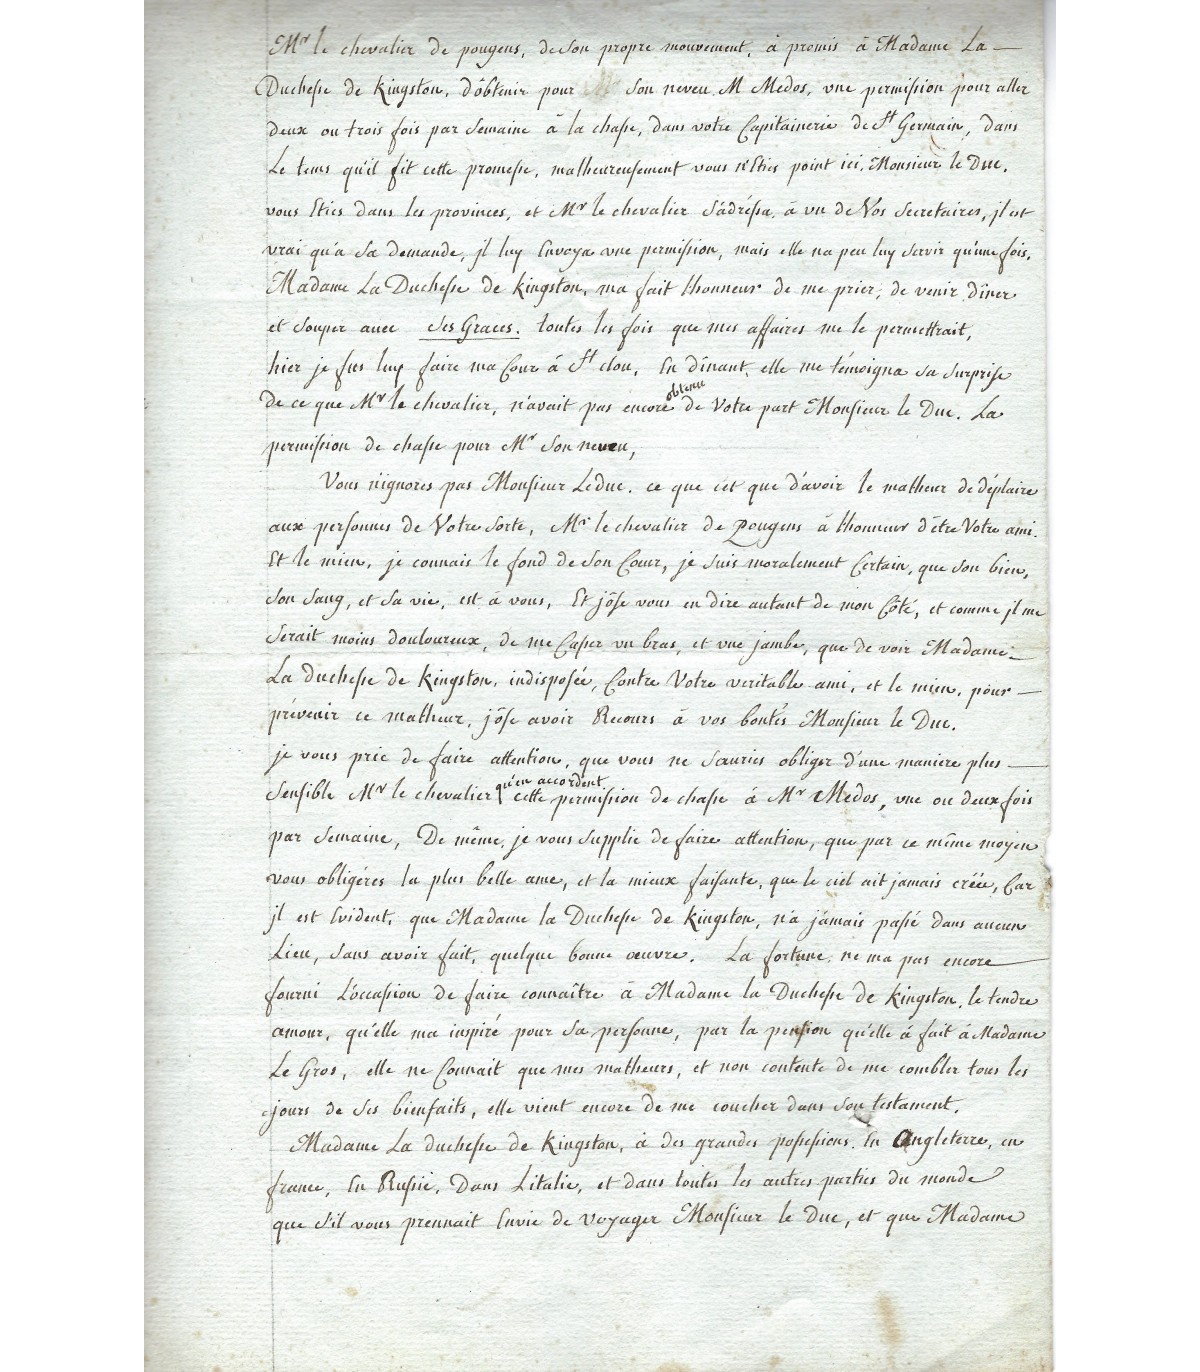 Mr le chevalier de pougens, de son propre mouvement, à promis à Madame La
Duchesse de Kingston, d'obtenir pour son neveu M Medos, une permission pour aller
deux ou trois fois par Semaine à la chasse, dans votre Capitainerie de St Germain, dans
Le tems qu'il fit cette promesse, malheureusement vous n'Eties point ici, Monsieur le Duc,
vous Eties dans les provinces, et Mr le chevalier S'adréssa, à un de Vos Secretaires, jl est
vrai qu'a Sa demande, jl luy Envoya une permission, mais elle na peu luy servir qu'une fois,
Madame La Duchesse de Kingston, ma fait lhonneur de me prier, de venir dîner
et Souper avec Ses Graces. toutes les fois que mes affaires me le permettrait,
hier je fus luy faire ma Cour à St clou, En dînant, elle me témoigna sa surprise
de ce que Mr le chevalier, n'avait pas encore obtenu de Votre part Monsieur le Duc. La
permission de chasse pour Mr Son neveu,
Vous n'ignores pas Monsieur Le duc. ce que c'et que d'avoir le malheur de déplaire
aux personnes de Votre Sorte, Mr le chevalier de Pougens à lhonneur d'être Votre ami.
Et le mien, je connais le fond de Son Cœur, je suis moralement Certain, que Son bien,
Son Sang, et Sa vie, est à vous, Et j'ôse vous en dire autant de mon Côté, et comme jl me
Serait moins douloureux, de me Casser un bras, et une jambe, que de voir Madame
La Duchesse de Kingston, indisposée, Contre Votre veritable ami, et le mien, pour
prévenir ce malheur, j'ôse avoir Recours à vos bontés Monsieur le Duc.
je vous prie de faire attention, que vous ne Sauries obliger d'une maniere plus
Sensible Mr le chevalier qu'en accordent cette permission de chasse à Mr Medos, une ou deux fois
par Semaine, De même, je vous Supplie de faire attention, que par ce même moyen
vous obligéres la plus belle ame, et la mieux faisante, que le ciel ait jamais créée, Car
jl est Evident, que Madame la Duchesse de Kingston, n'a jamais passé dans aucun
Lieu, Sans avoir fait, quelque bonne œuvre. La fortune ne ma pas encore
fourni L'occasion de faire connaître à Madame la Duchesse de Kingston, le tendre
amour, qu'elle ma inspiré pour Sa personne, par la pension qu'elle à fait à Madame
Le Gros, elle ne Connait que mes malheurs, et non contente de me combler tous les
jours de Ses bienfaits, elle vient encore de me coucher dans Son testament.
Madame La duchesse de Kingston, à des grandes possessions. En Angleterre, en
france, En Russie, Dans L'italie, et dans toutes les autres parties du monde
que S'il vous prennait Envie de voyager Monsieur le Duc, et que Madame